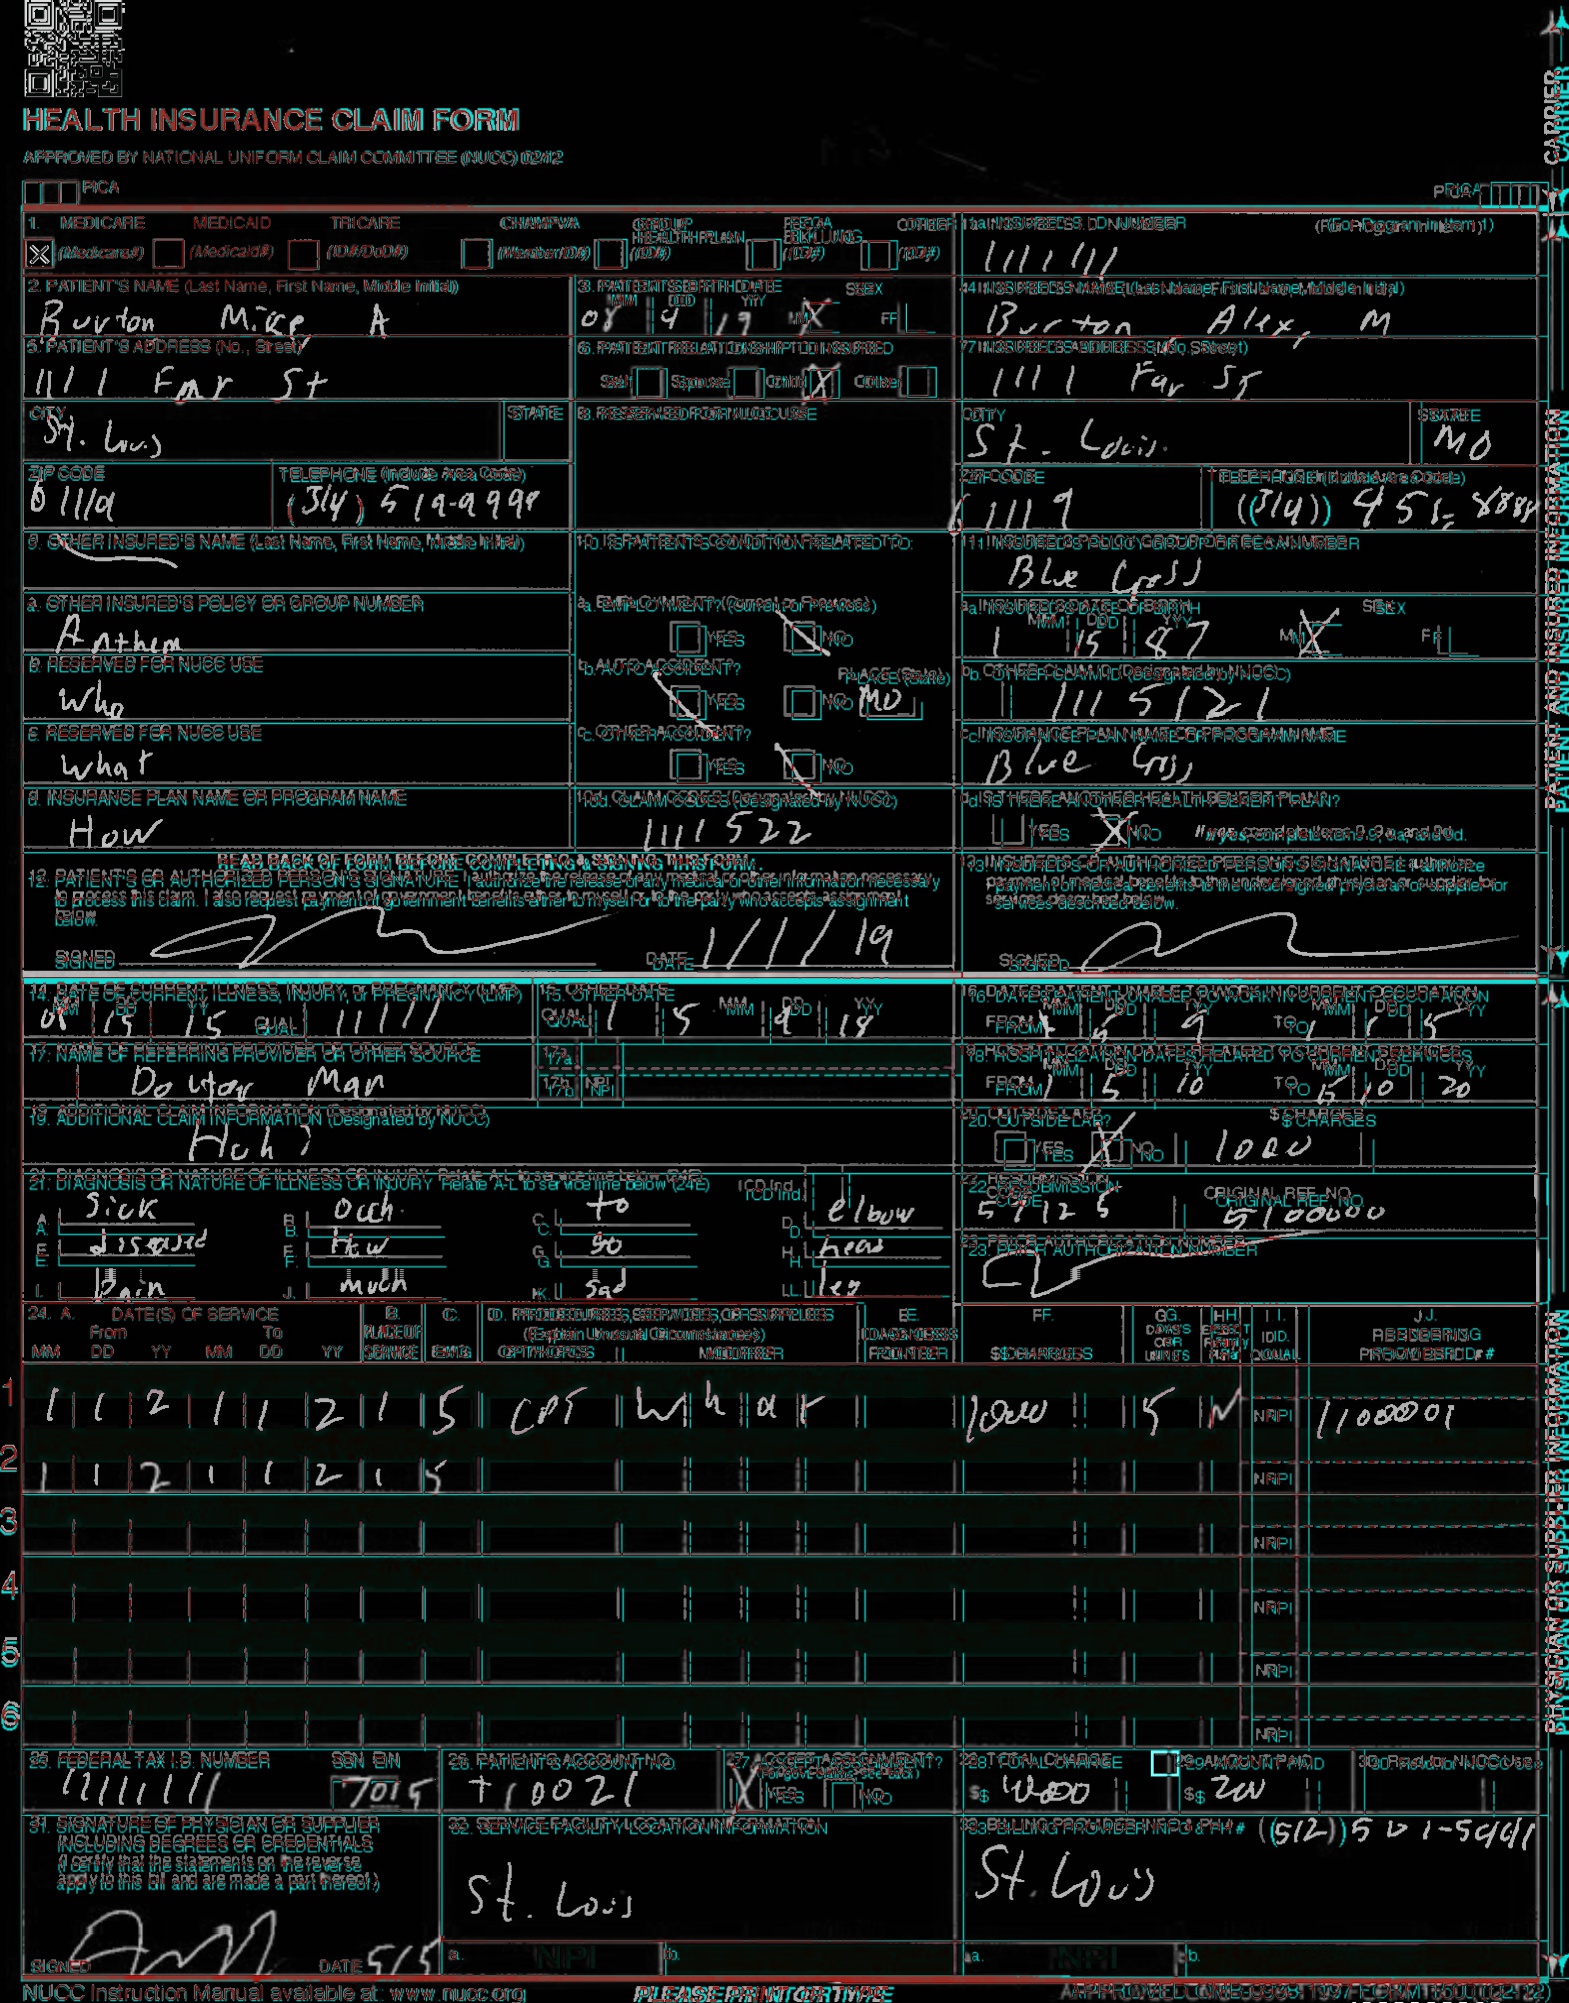 HEALTH INSURANCE CLAIM FORM
APPROVED BY NATIONAL UNIFORM CLAIM COMMITTEE (NUCC) 02/12
PICA
PICA
CARRIER
1. MEDICARE MEDICAID TRICARE CHAMPVA GROUP HEALTH PLAN FECA BLK LUNG OTHER
X (Medicare#) (Medicaid#) (ID#/DoD#) (Member ID#) (ID#) (ID#) (ID#)
1a. INSURED'S I.D. NUMBER (For Program in Item 1)
1111111
2. PATIENT'S NAME (Last Name, First Name, Middle Initial)
Burton Mike A
3. PATIENT'S BIRTH DATE SEX
MM DD YY
08 9 19 M X F
4. INSURED'S NAME (Last Name, First Name, Middle Initial)
Burton Alex, M
5. PATIENT'S ADDRESS (No., Street)
1111 Far St
6. PATIENT RELATIONSHIP TO INSURED
Self Spouse Child X Other
7. INSURED'S ADDRESS (No., Street)
1111 Far St
CITY STATE
St. Louis
8. RESERVED FOR NUCC USE
CITY STATE
St. Louis. MO
ZIP CODE TELEPHONE (Include Area Code)
61119 (314) 519-9999
ZIP CODE TELEPHONE (Include Area Code)
61119 (314)
9. OTHER INSURED'S NAME (Last Name, First Name, Middle Initial)
10. IS PATIENT'S CONDITION RELATED TO:
11. INSURED'S POLICY GROUP OR FECA NUMBER
Blue Cross
a. OTHER INSURED'S POLICY OR GROUP NUMBER
Anthem
a. EMPLOYMENT? (Current or Previous)
YES NO
a. INSURED'S DATE OF BIRTH SEX
MM DD YY
1 15 87 M X F
b. RESERVED FOR NUCC USE
Who
b. AUTO ACCIDENT? PLACE (State)
YES NO MO
b. OTHER CLAIM ID (Designated by NUCC)
1115121
c. RESERVED FOR NUCC USE
What
c. OTHER ACCIDENT?
YES NO
c. INSURANCE PLAN NAME OR PROGRAM NAME
Blue Cross
d. INSURANCE PLAN NAME OR PROGRAM NAME
How
10d. CLAIM CODES (Designated by NUCC)
1111522
d. IS THERE ANOTHER HEALTH BENEFIT PLAN?
YES X NO If yes, complete items 9, 9a, and 9d.
READ BACK OF FORM BEFORE COMPLETING & SIGNING THIS FORM.
12. PATIENT'S OR AUTHORIZED PERSON'S SIGNATURE I authorize the release of any medical or other information necessary
to process this claim. I also request payment of government benefits either to myself or to the party who accepts assignment
below.
SIGNED DATE 1/1/19
13. INSURED'S OR AUTHORIZED PERSON'S SIGNATURE I authorize
payment of medical benefits to the undersigned physician or supplier for
services described below.
SIGNED
PATIENT AND INSURED INFORMATION
14. DATE OF CURRENT ILLNESS, INJURY, or PREGNANCY (LMP)
MM DD YY
15 15 QUAL. 11111
15. OTHER DATE
QUAL. MM DD YY
1 5 9 18
16. DATES PATIENT UNABLE TO WORK IN CURRENT OCCUPATION
MM DD YY MM DD YY
FROM 1 5 9 TO 1 1 5
17. NAME OF REFERRING PROVIDER OR OTHER SOURCE
Doctor Man
17a.
17b. NPI
18. HOSPITALIZATION DATES RELATED TO CURRENT SERVICES
MM DD YY MM DD YY
FROM 1 5 10 TO 15 10 20
19. ADDITIONAL CLAIM INFORMATION (Designated by NUCC)
Huh?
20. OUTSIDE LAB? $ CHARGES
YES X NO 1000
21. DIAGNOSIS OR NATURE OF ILLNESS OR INJURY Relate A-L to service line below (24E) ICD Ind.
A. Sick B. Ouch. C. to D. elbow
E. diseased F. How G. go H. head
I. Pain J. much K. sad L. leg
22. RESUBMISSION CODE ORIGINAL REF. NO.
57125 5100000
23. PRIOR AUTHORIZATION NUMBER
24. A. DATE(S) OF SERVICE B. C. D. PROCEDURES, SERVICES, OR SUPPLIES E. F. G. H. I. J.
From To PLACE OF (Explain Unusual Circumstances) DIAGNOSIS DAYS OR EPSDT ID. RENDERING
MM DD YY MM DD YY SERVICE EMG CPT/HCPCS MODIFIER POINTER $ CHARGES UNITS Family Plan QUAL. PROVIDER ID. #
1 1 1 2 1 1 2 1 5 CPT What 1000 5 N NPI 11000001
2 1 1 2 1 1 2 1 5 NPI
3 NPI
4 NPI
5 NPI
6 NPI
25. FEDERAL TAX I.D. NUMBER SSN EIN
11111111 7015
26. PATIENT'S ACCOUNT NO.
T10021
27. ACCEPT ASSIGNMENT?
(For govt. claims, see back)
X YES NO
28. TOTAL CHARGE
$
29. AMOUNT PAID
$ 200
30. Rsvd for NUCC Use
31. SIGNATURE OF PHYSICIAN OR SUPPLIER
INCLUDING DEGREES OR CREDENTIALS
(I certify that the statements on the reverse
apply to this bill and are made a part thereof.)
SIGNED DATE 5/5
32. SERVICE FACILITY LOCATION INFORMATION
St. Louis
a. NPI b.
33. BILLING PROVIDER INFO & PH # (512)
St. Louis
a. NPI b.
PHYSICIAN OR SUPPLIER INFORMATION
NUCC Instruction Manual available at: www.nucc.org
PLEASE PRINT OR TYPE